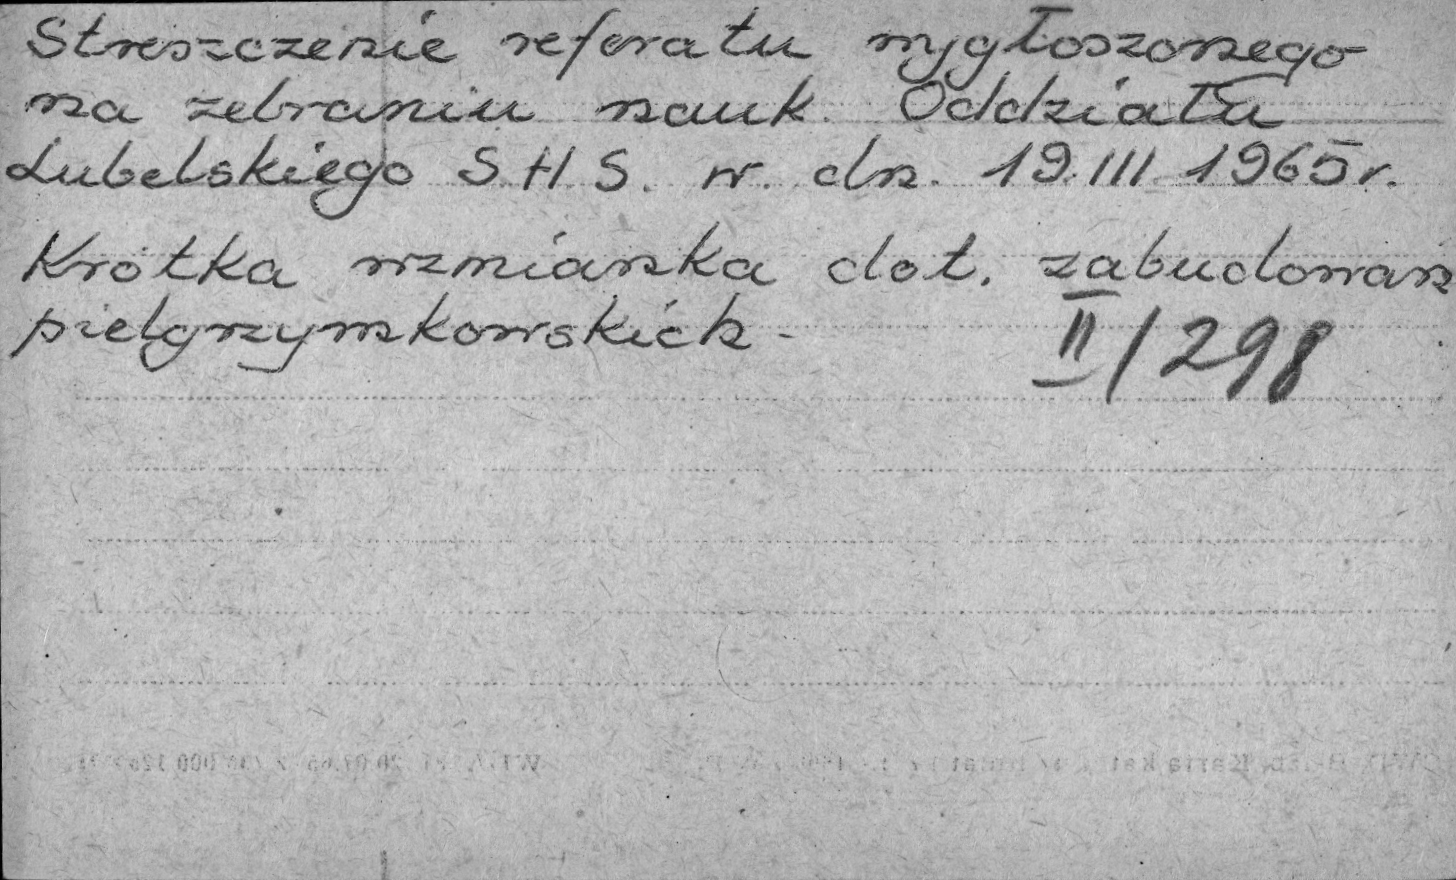 Streszczenie referatu wygłoszonego
na zebraniu nauk. Oddziału
Lubelskiego S.H.S. w. dn. 19.III 1965r.
Krótka wzmianka dot. zabudowań
pielgrzymkowskich -
II/298